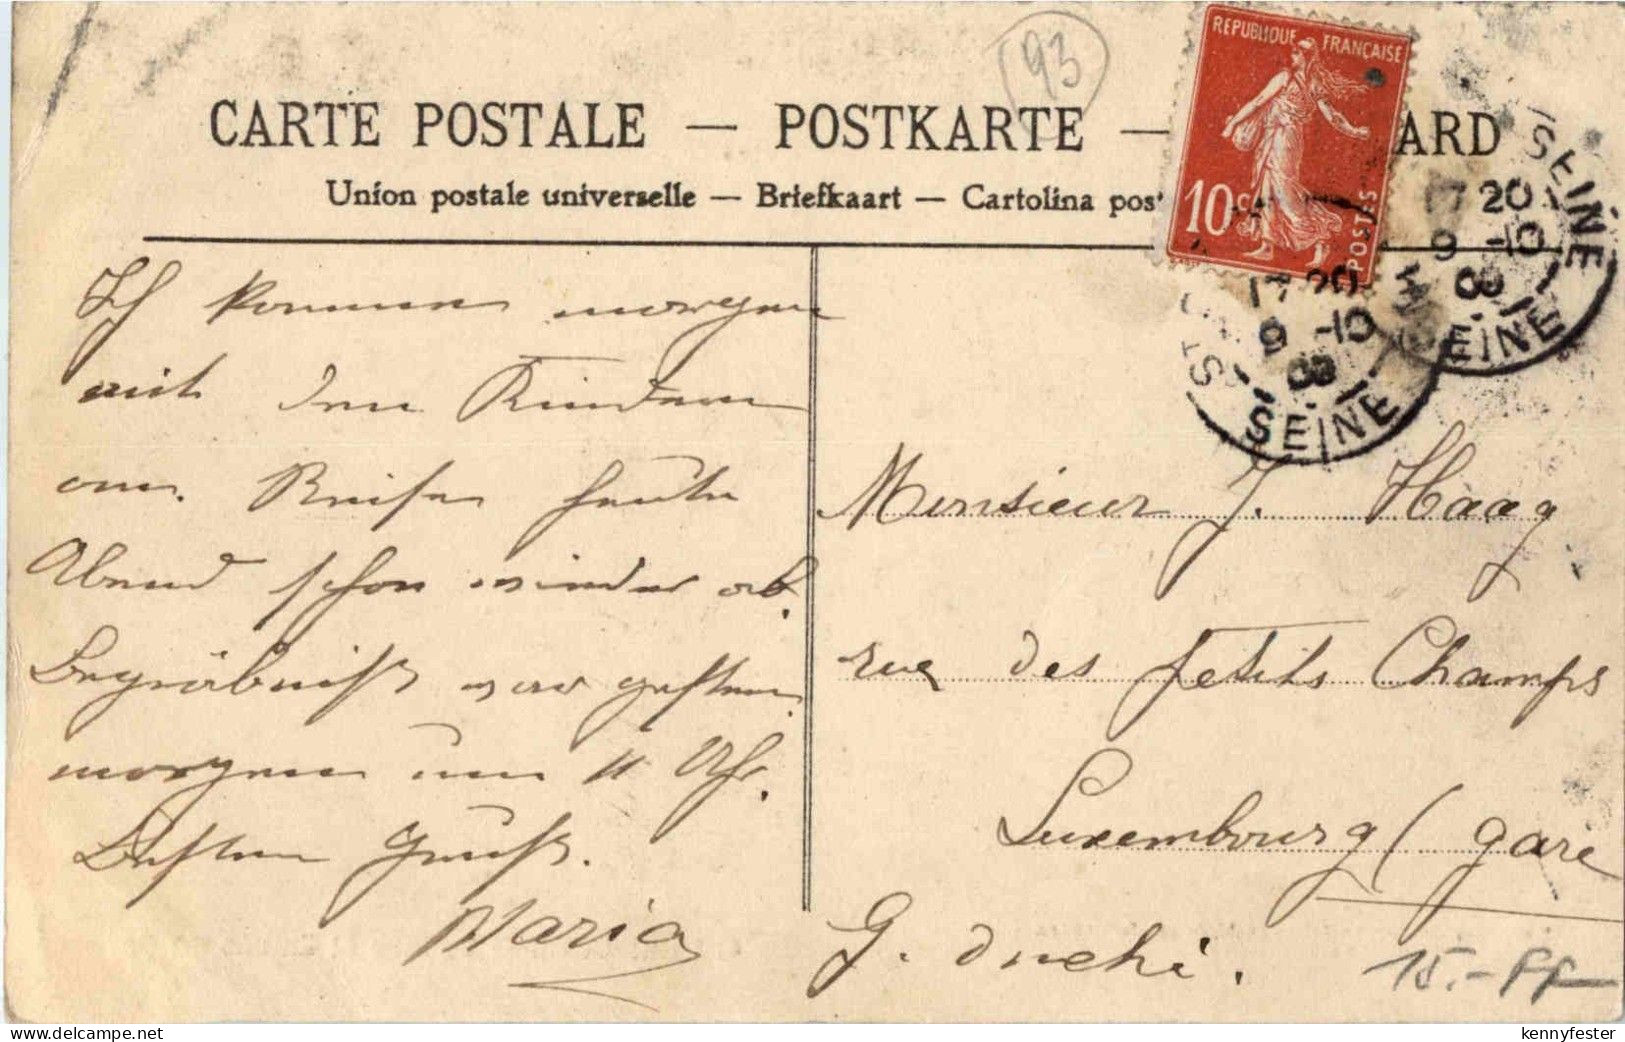 93
CARTE POSTALE — POSTKARTE — ARD
Union postale universelle — Briefkaart — Cartolina post
REPUBLIQUE FRANÇAISE
10 c
POSTES
SEINE
17 20
9 -10
08
SEINE
17 20
9 -10
08
ST
SEINE
Ich kommen morgen
mit den Kindern
an. Reisen heute
Abend schon wieder ab.
Begräbniß war gestern
morgen um 11 Uhr.
Besten Gruß.
Maria
Monsieur J. Haag
rue des Petits Champs
Luxembourg (gare
G. duché.
15.- FF
kennyfester